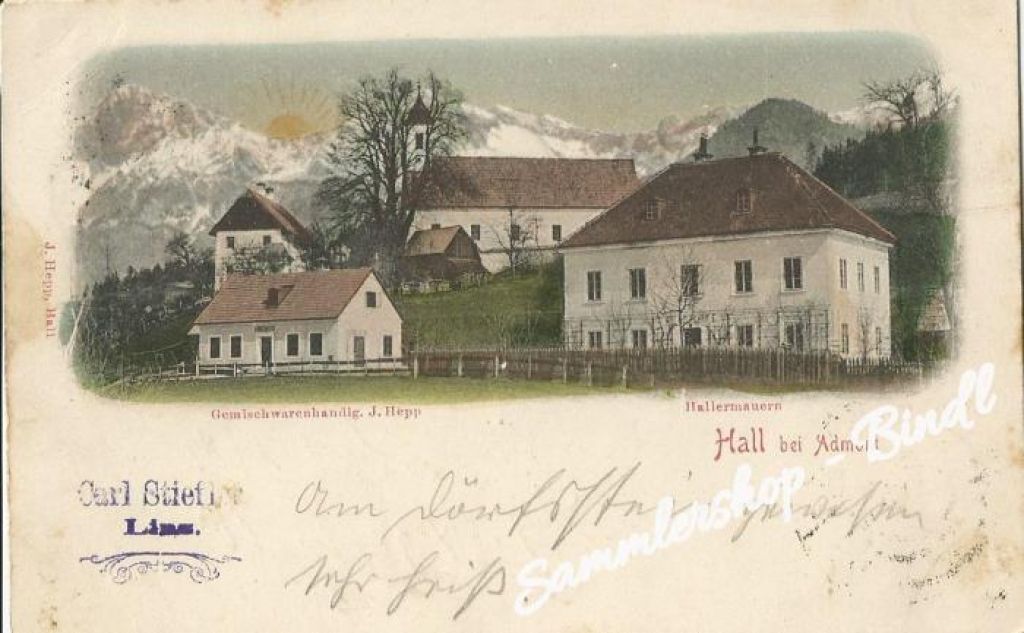 J. Hepp, Hall
Gemischwarenhandlg. J. Hepp
Hallermauern
Hall bei Admont
Carl Stiefl
Linz.
Am Dörfstein gewesen
sehr heiß
Sammlershop - Bindl